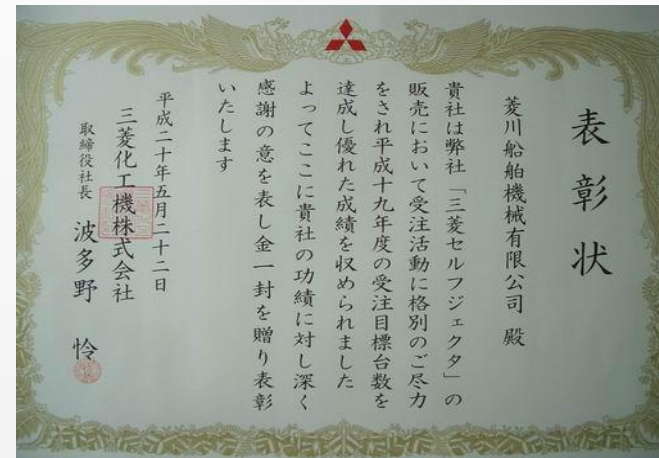 表彰状
菱川船舶機械有限公司 殿
貴社は弊社「三菱セルフジェクタ」の
販売において受注活動に格別のご尽力
をされ平成十九年度の受注目標台数を
達成し優れた成績を収められました
よってここに貴社の功績に対し深く
感謝の意を表し金一封を贈り表彰
いたします
平成二十年五月二十二日
三菱化工機株式会社
取締役社長 波多野 怜